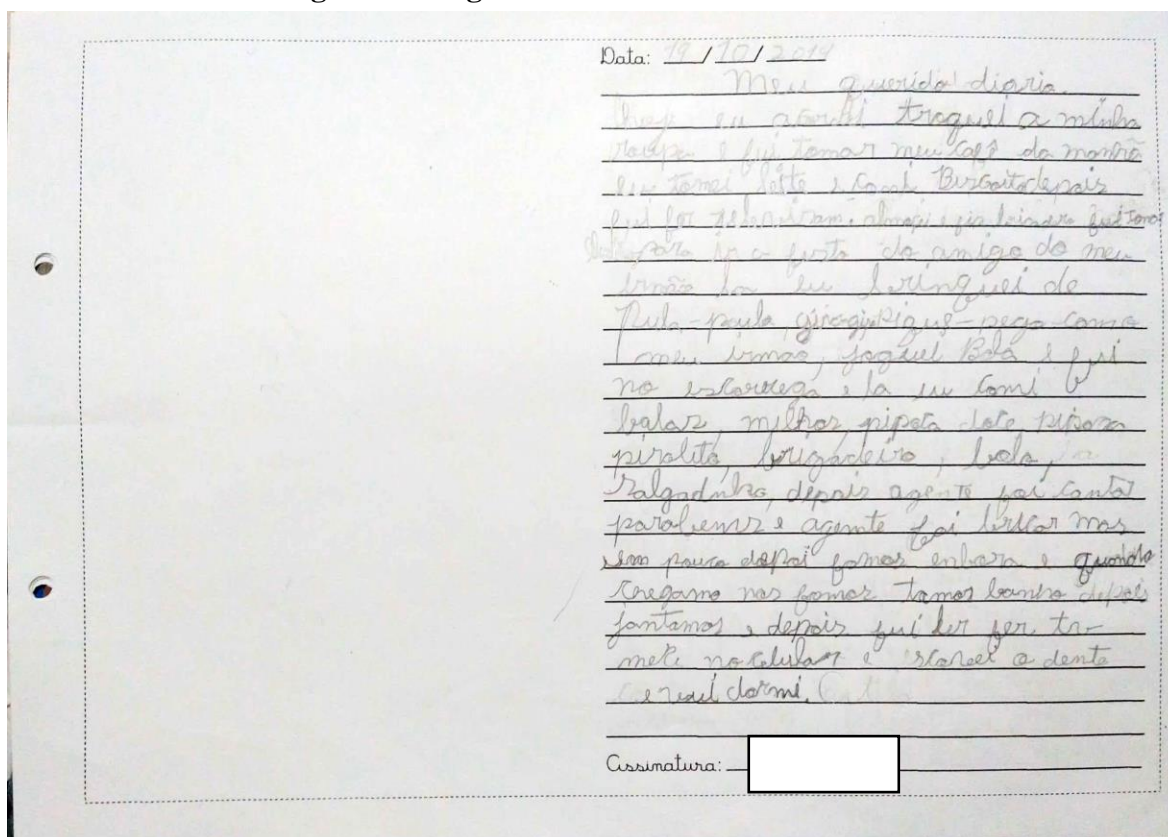 Data: 19/10/2019
Meu querido diario
eu acordei troquei a minha
roupa e fui tomar meu café da manhã
eu tomei leite e comi Biscoito depois
fui almoçei e fis fui toma
para ir a festa do amigo do meu
irmão la eu brinquei de
Pula-paula, gira-gira Pique-pega com o
meu irmão, joguei Bola e fui
no escorrega e la eu comi
balas, milhos, pipoca doce, pipoca
pirolito, brigadeiro, bolo,
salgadinho, depois agente foi canta
parabems e agente foi bricar mas
um pouco depoi fomos enbora e quando
cregamo nos fomos tamos banho depois
jantamos e depois fui ler
no celular e a dente
e dormi.
Assinatura: